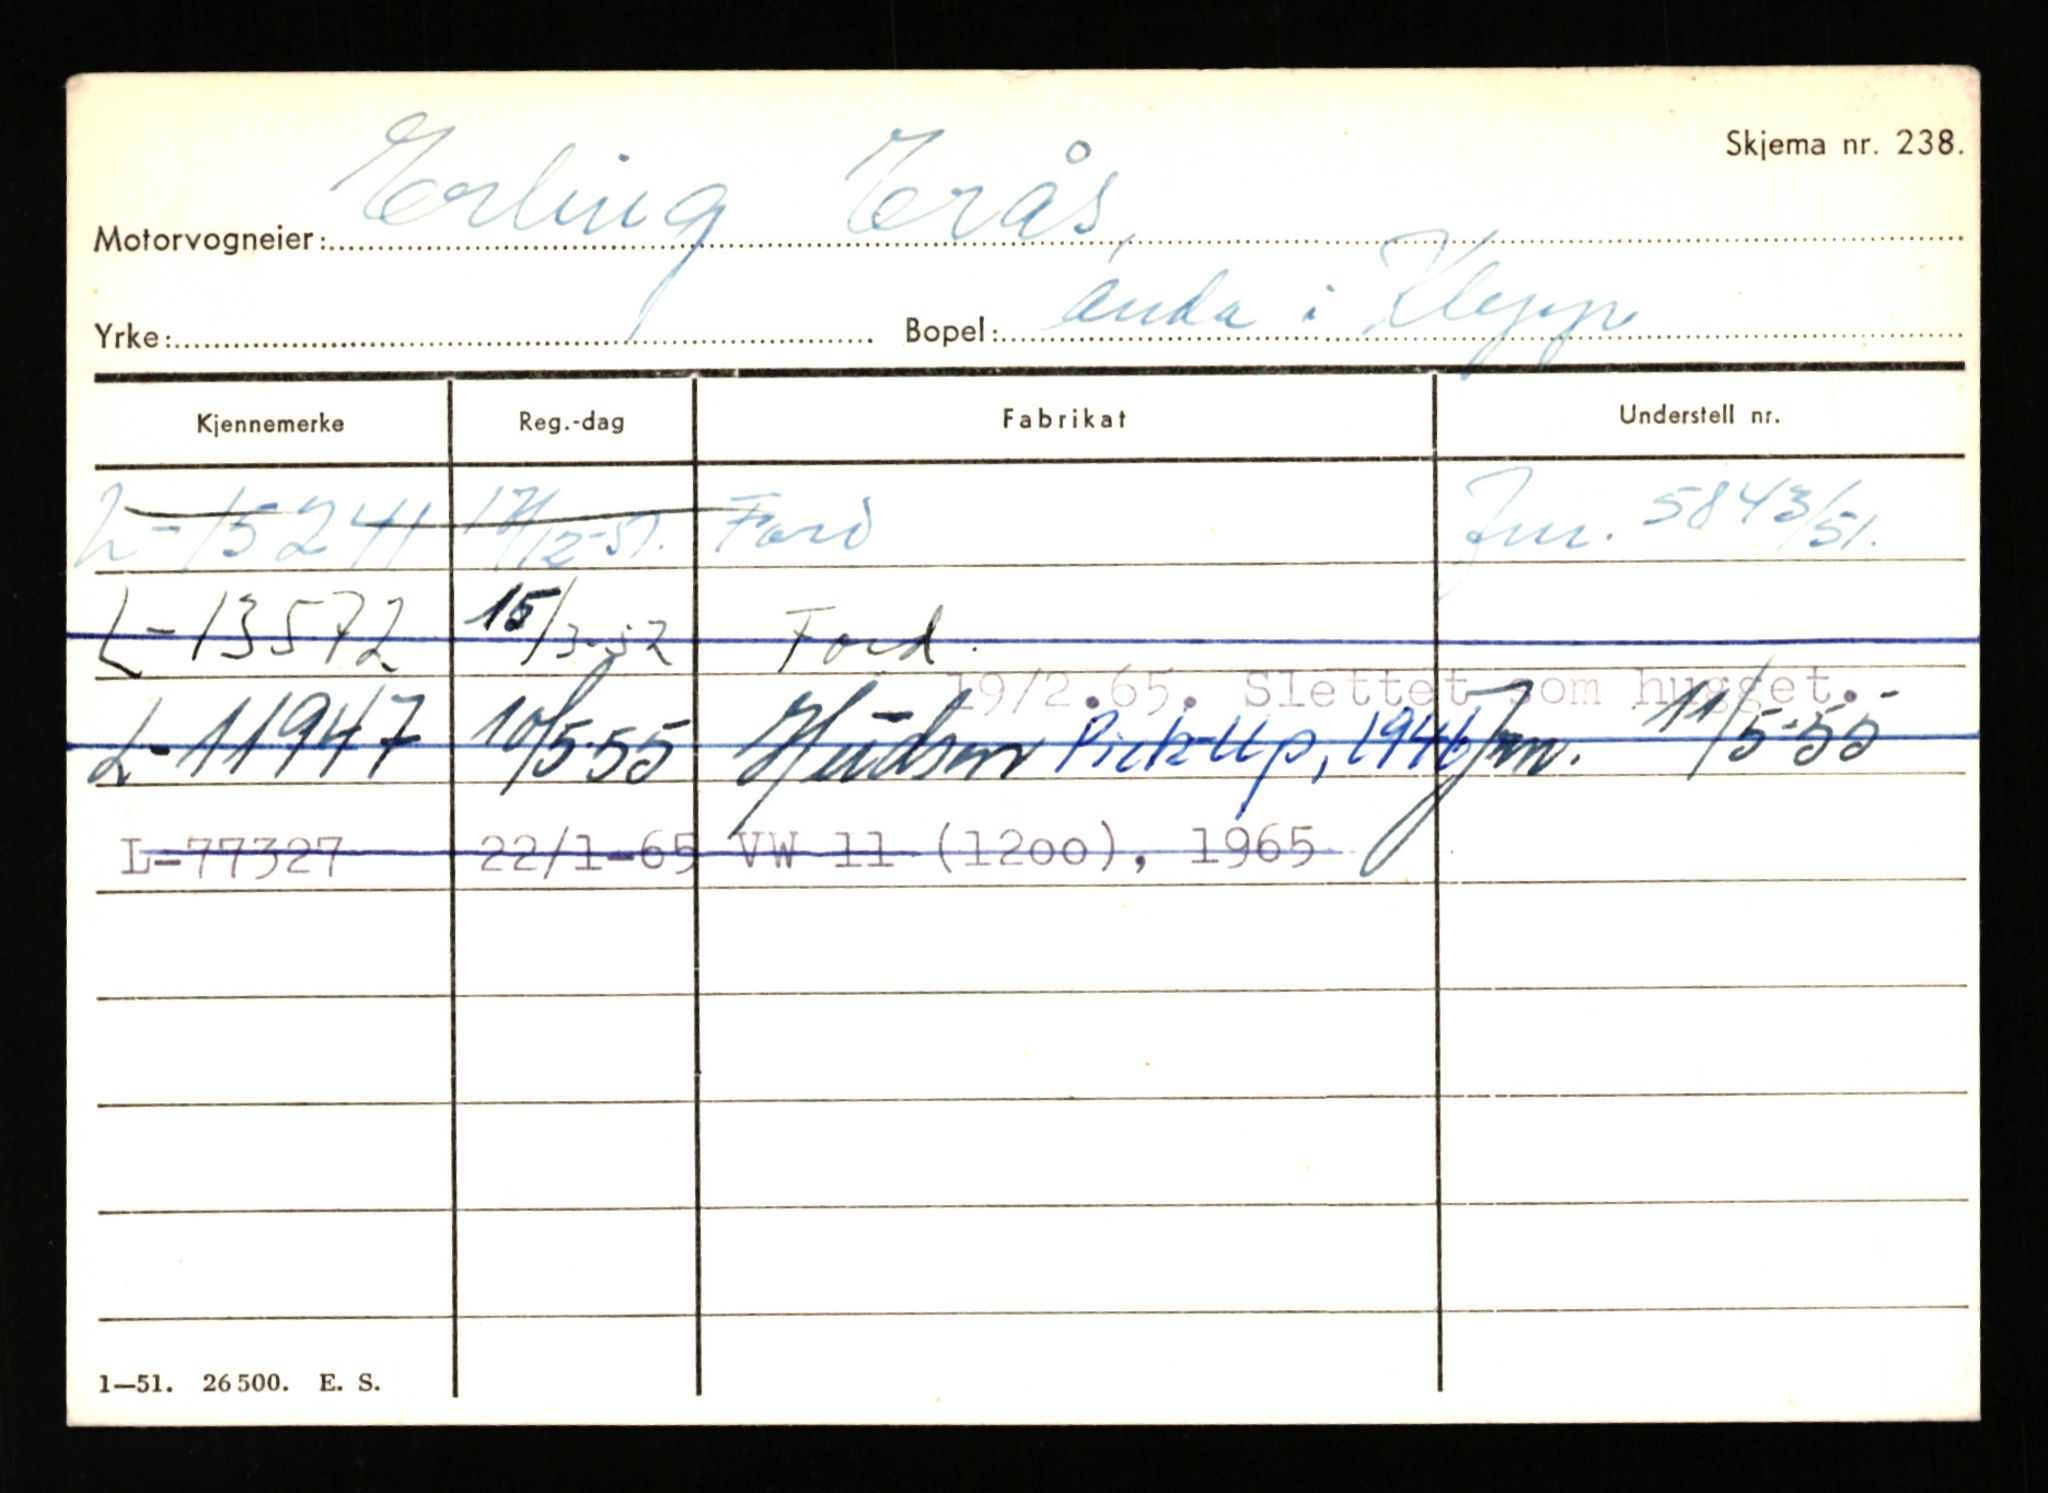 Skjema nr. 238.
Motorvogneier: Erling Erås,
Yrke: Bopel: Anda i Klepp
Kjennemerke Reg.-dag Fabrikat Understell nr.
L-15241 17/12-51. Ford Jnr. 5843/51.
L-13572 15/3-52 Ford.
19/2.65. Slettet som hugget.
L-11947 10/5-55 Hudson Pick-Up, 1946 Jnr. 11/5-55
L-77327 22/1-65 VW 11 (1200), 1965
1—51. 26500. E. S.